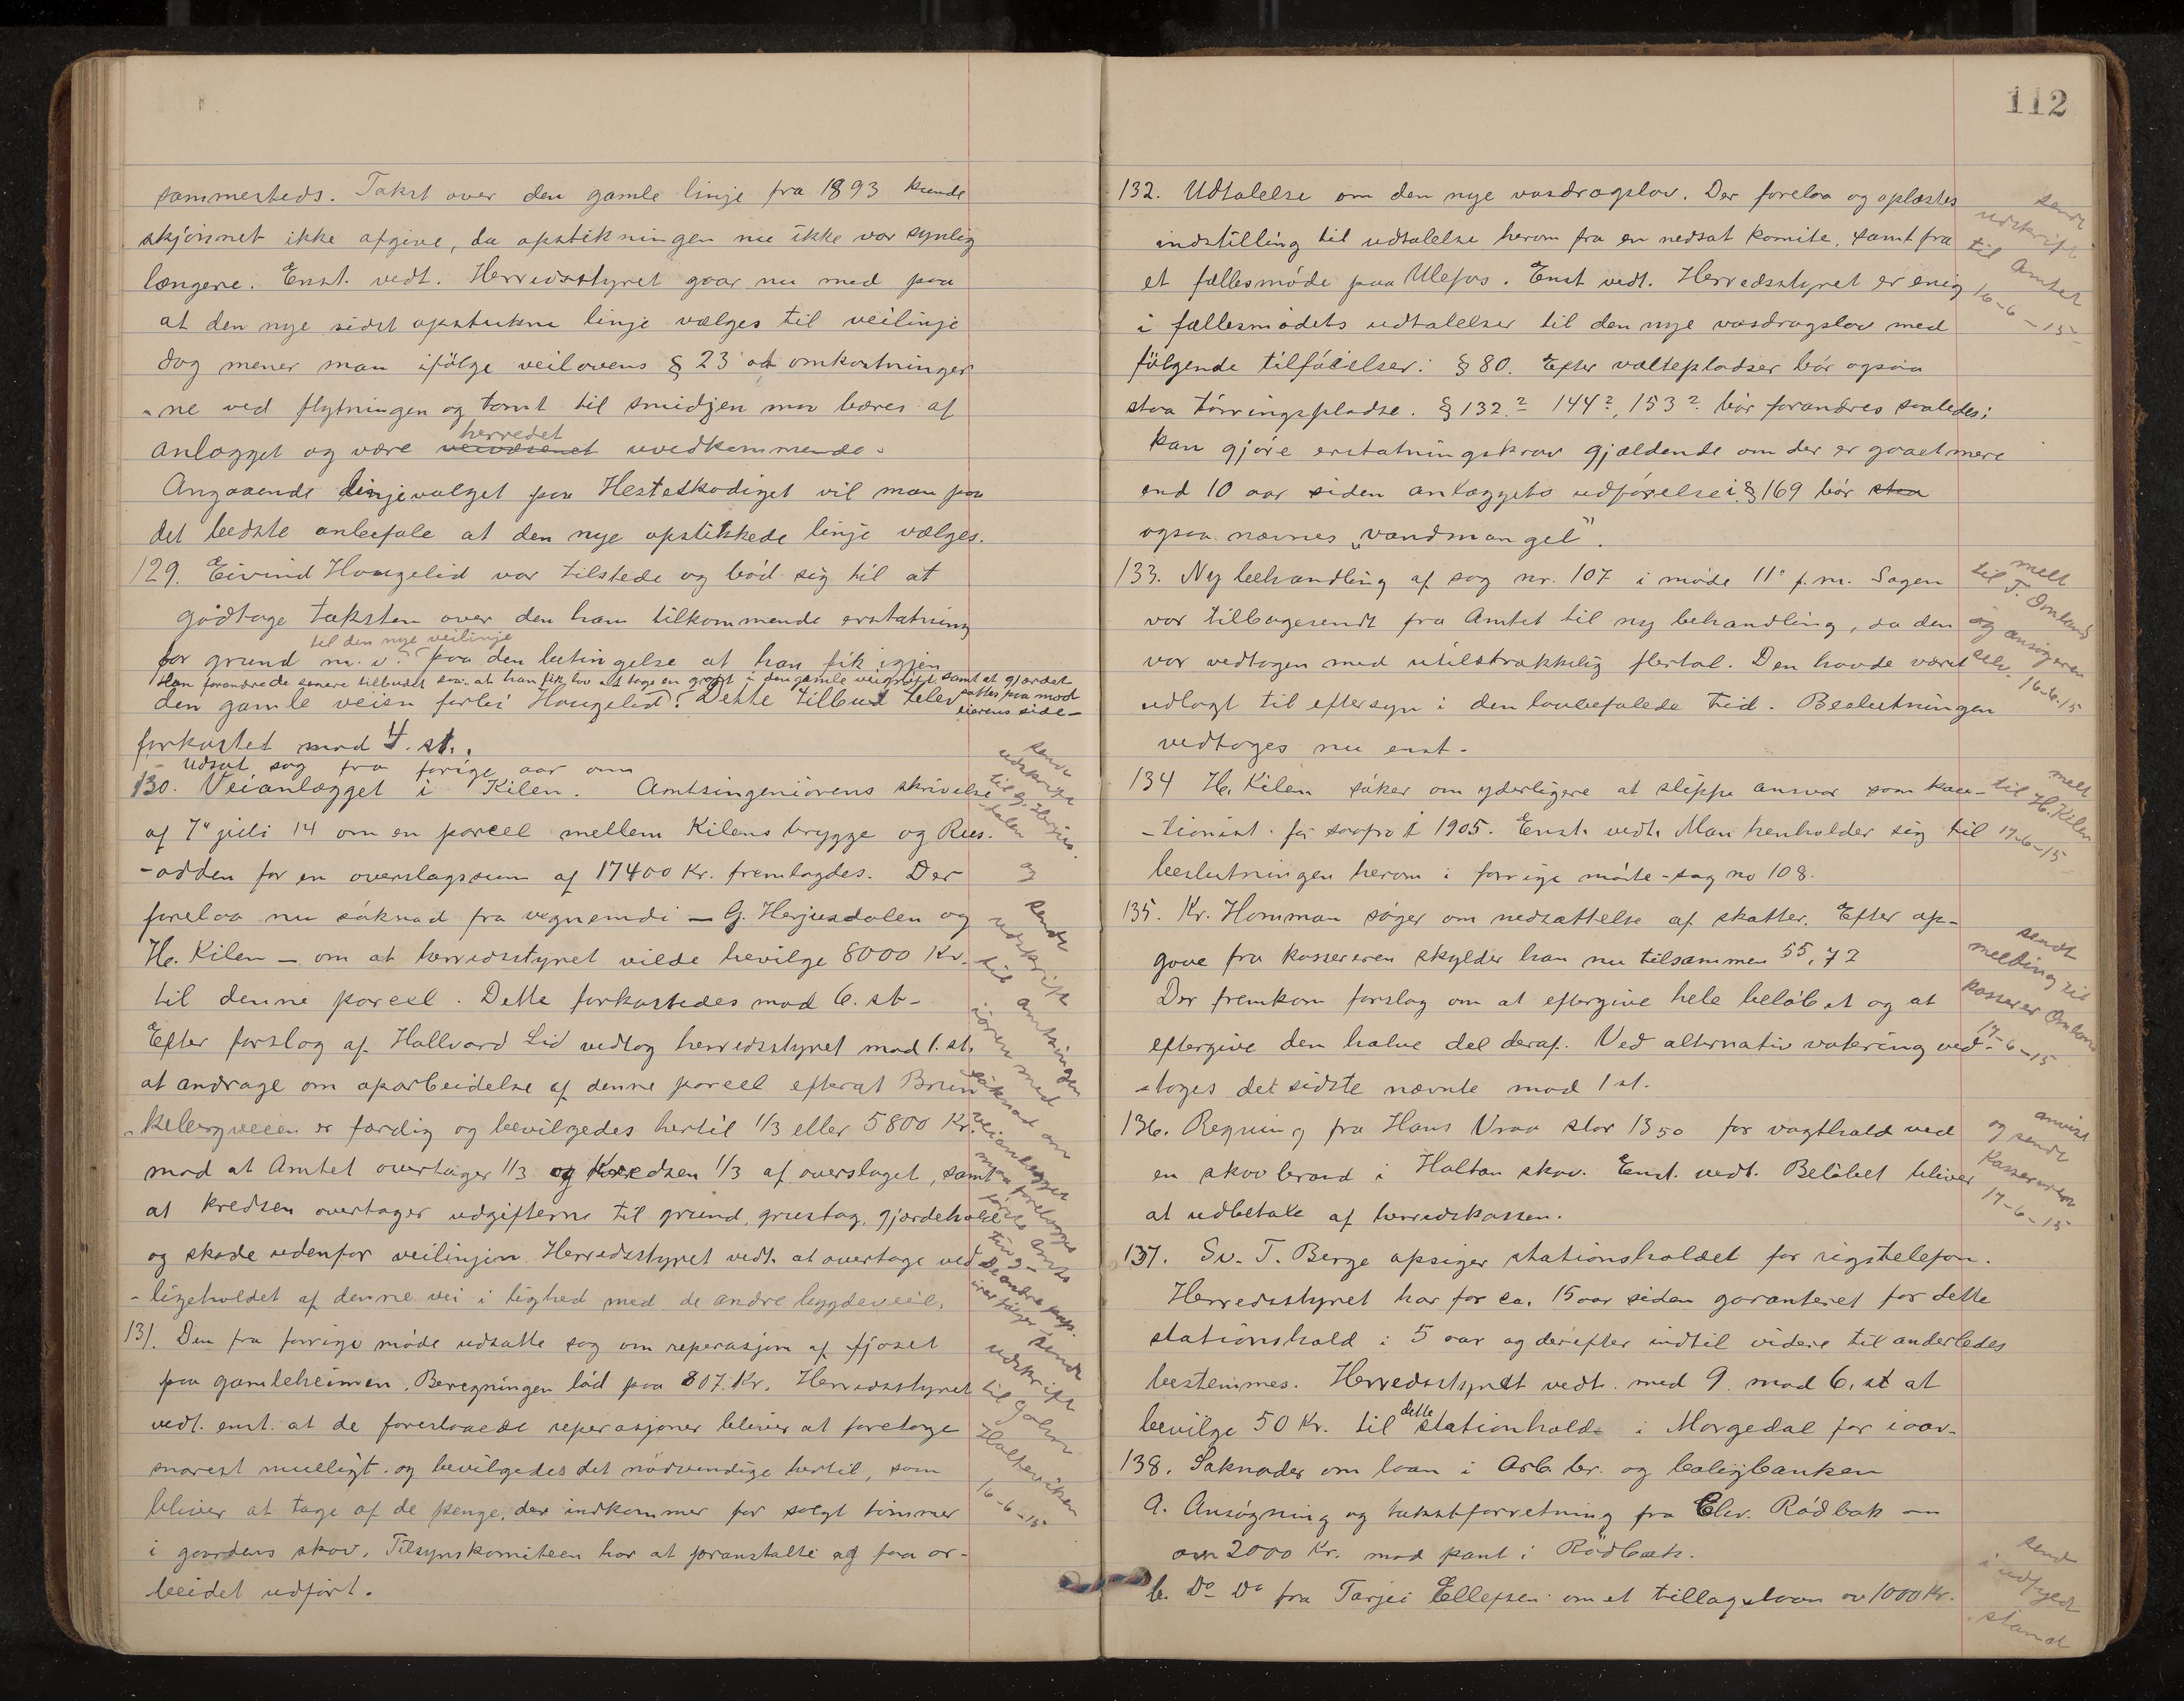 sammesteds. Takst over den gamle linje fra 1893 kunde
skjønnet ikke afgive, da opstikningen nu ikke var synlig
længere. Enst. vedt. Herredsstyret gaar nu med paa
at den nye sidst opstukne linje vælges til veilinje
dog mener man ifølge veilovens § 23 at omkostninger
-ne ved flytningen og tomt til smidjen maa bæres af
herredet
anlægget og være veivæsenet uvedkommende.
Angaaende linjevalget paa Hesteskodiget vil man paa
det bedste anbefale at den nye opstikkede linje vælges.
129. Eivind Haugelid var tilstede og bød sig til at
godtage taksten over den ham tilkommende erstatning
til den nye veilinje
for grund m. v. paa den betingelse at han fik igjen
Han forandrede senere tilbudet saa at han fik lov at tage en grøft i den gamle veigrøft samt at gjærdet
sattes paa mod
eierens side-
den gamle veien forbi Haugelid? Dette tilbud blev
forkastet mod 4. st.
udsat sag fra forige aar om
130. Veianlægget i Kilen. Amtsingeniørens skrivelse
af 7de juli 14 om en parcel mellem Kilens brygge og Rus-
-odden for en overslagssum af 17400 Kr. fremlagdes. Der
forelaa nu søknad fra vegnemdi — G. Herjusdalen og
H. Kilen — om at herredsstyret vilde bevilge 8000 Kr.
til denne parcel. Dette forkastedes mod 6. st-
Efter forslag af Hallvard Lid vedtog herredsstyret mod 1. st.
at andrage om oparbeidelse af denne parcel efterat Brun
-kebergveien er færdig og bevilgedes hertil 1/3 eller 5800 Kr.
mod at Amtet overtager 1/3 og Kredsen 1/3 af overslaget, samt
at kredsen overtager udgifterne til grund, grustag, gjærdehold
og skade udenfor veilinjen. Herredsstyret vedt. at overtage ved
-ligeholdet af denne vei i lighed med de andre bygdeveie.
131. Den fra forrige møde udsatte sag om reperasjon af fjøset
paa gamleheimen. Beregningen lød paa 807. Kr. Herredsstyret
vedt. enst. at de foreslaaede reperasjoner bliver at foretage
snarest mulligt. og bevilgedes det nødvendige hertil, som
bliver at tage af de penge, der indkommer for solgt tømmer
i gaardens skov. Tilsynskomiteen har at foranstalte og faa ar-
beidet udført.
sendt
udskrift
til G. Herjus-
dalen
og
sendt
udskrift
til amtsingen
iøren med
søknad om
veianlægget
maa forelægges
første amts
ting-
De andre pap-
irer følger-
sendt
udskrift
til
16-6-15
112
132. Udtalelse om den nye vasdragslov. Der forelaa og oplæstes
indstilling til udtalelse herom fra en nedsat komite, samt fra
et fællesmøde paa Ulefos. Enst vedt. Herredsstyret er enig
i fællesmødets udtalelser til den nye vasdragslov med
følgende tilføielser: § 80. Efter væltepladser bør ogsaa
staa tørringspladse. § 132.2 144 2, 153 2 bør forandres saaledes:
kan gjøre erstatningskrav gjældende om der er gaaet mere
end 10 aar siden anlæggets udførelse i § 169 bør staa
ogsaa nævnes „vandmangel".
133. Ny behandling af sag nr. 107 i møde 11te f.m. Sagen
var tilbagesendt fra Amtet til ny behandling, da den
var vedtagen med utilstrækkelig flertal. Den havde været
udlagt til eftersyn i den lovbefalede tid. Beslutningen
vedtoges nu enst.
134 H. Kilen søker om yderligere at slippe ansvar som kau-
-tionist for 1905. Enst. vedt. Man henholder sig til
beslutningen herom i forrige møte-sag no 108.
135. Kr. Homman søger om nedsættelse af skatter. Efter op-
gave fra kassereren skylder han nu tilsammen 55,72
Der fremkom forslag om at eftergive hele beløbet og at
eftergive den halve del deraf. Ved alternativ votering ved-
-toges det sidste nævnte mod 1 st.
136. Regning fra Hans Vraa stor 13 50 for vagthold ved
en skovbrand i Haltan skov. Enst. vedt. Beløbet bliver
at udbetale af herredskassen.
137. Sv. T. Berge opsiger stationsholdet for rigstelefon.
Herredsstyret har for ca. 15 aar siden garanteret for dette
stationshold i 5 aar og derefter indtil videre til anderledes
bestemmes. Herredsstyret vedt. med 9 mod 6. st at
dette
bevilge 50 Kr. til stationhold i Morgedal for iaar.
138. Søknader om laan i Arb. br. og boligbanken
A. Ansøgning og takstforretning fra Elev. Rødbæk —
om 2000 Kr. mod pant i Rødbæk.
b. Do Do fra Tarjei Ellefsen om et tillægslaan av 1000 Kr.
sendt
udskrift
til Amtet
16-6-15
melt
til T. Omland
og ansøgeren
selv.
16-6-15
melt
til H. Kilen
17-6-15
sendt
melding til
kasserer Omland
17-6-15
anvist
og sendt
Kassereren
17-6-15
send
i udfyldt
stand